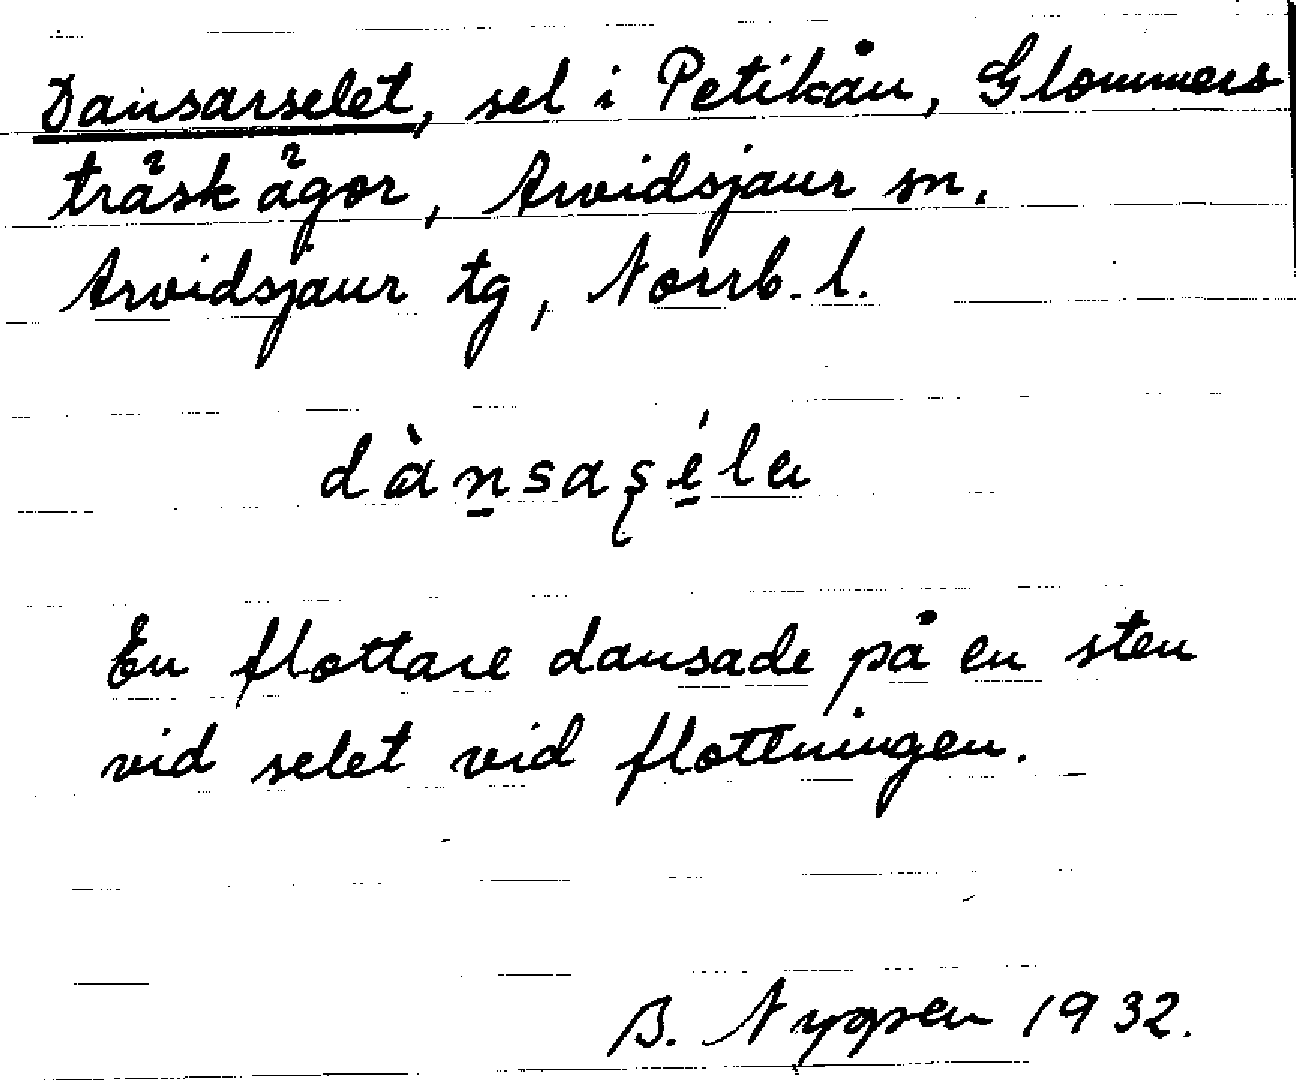 Dansarselet, sel i Petikån, Glommers
träsk ägor, Arvidsjaur sn.
Arvidsjaur tg, Norrb. l.
dànsaşéla
En flottare dansade på en sten
vid selet vid flottningen.
B. Nygren 1932.